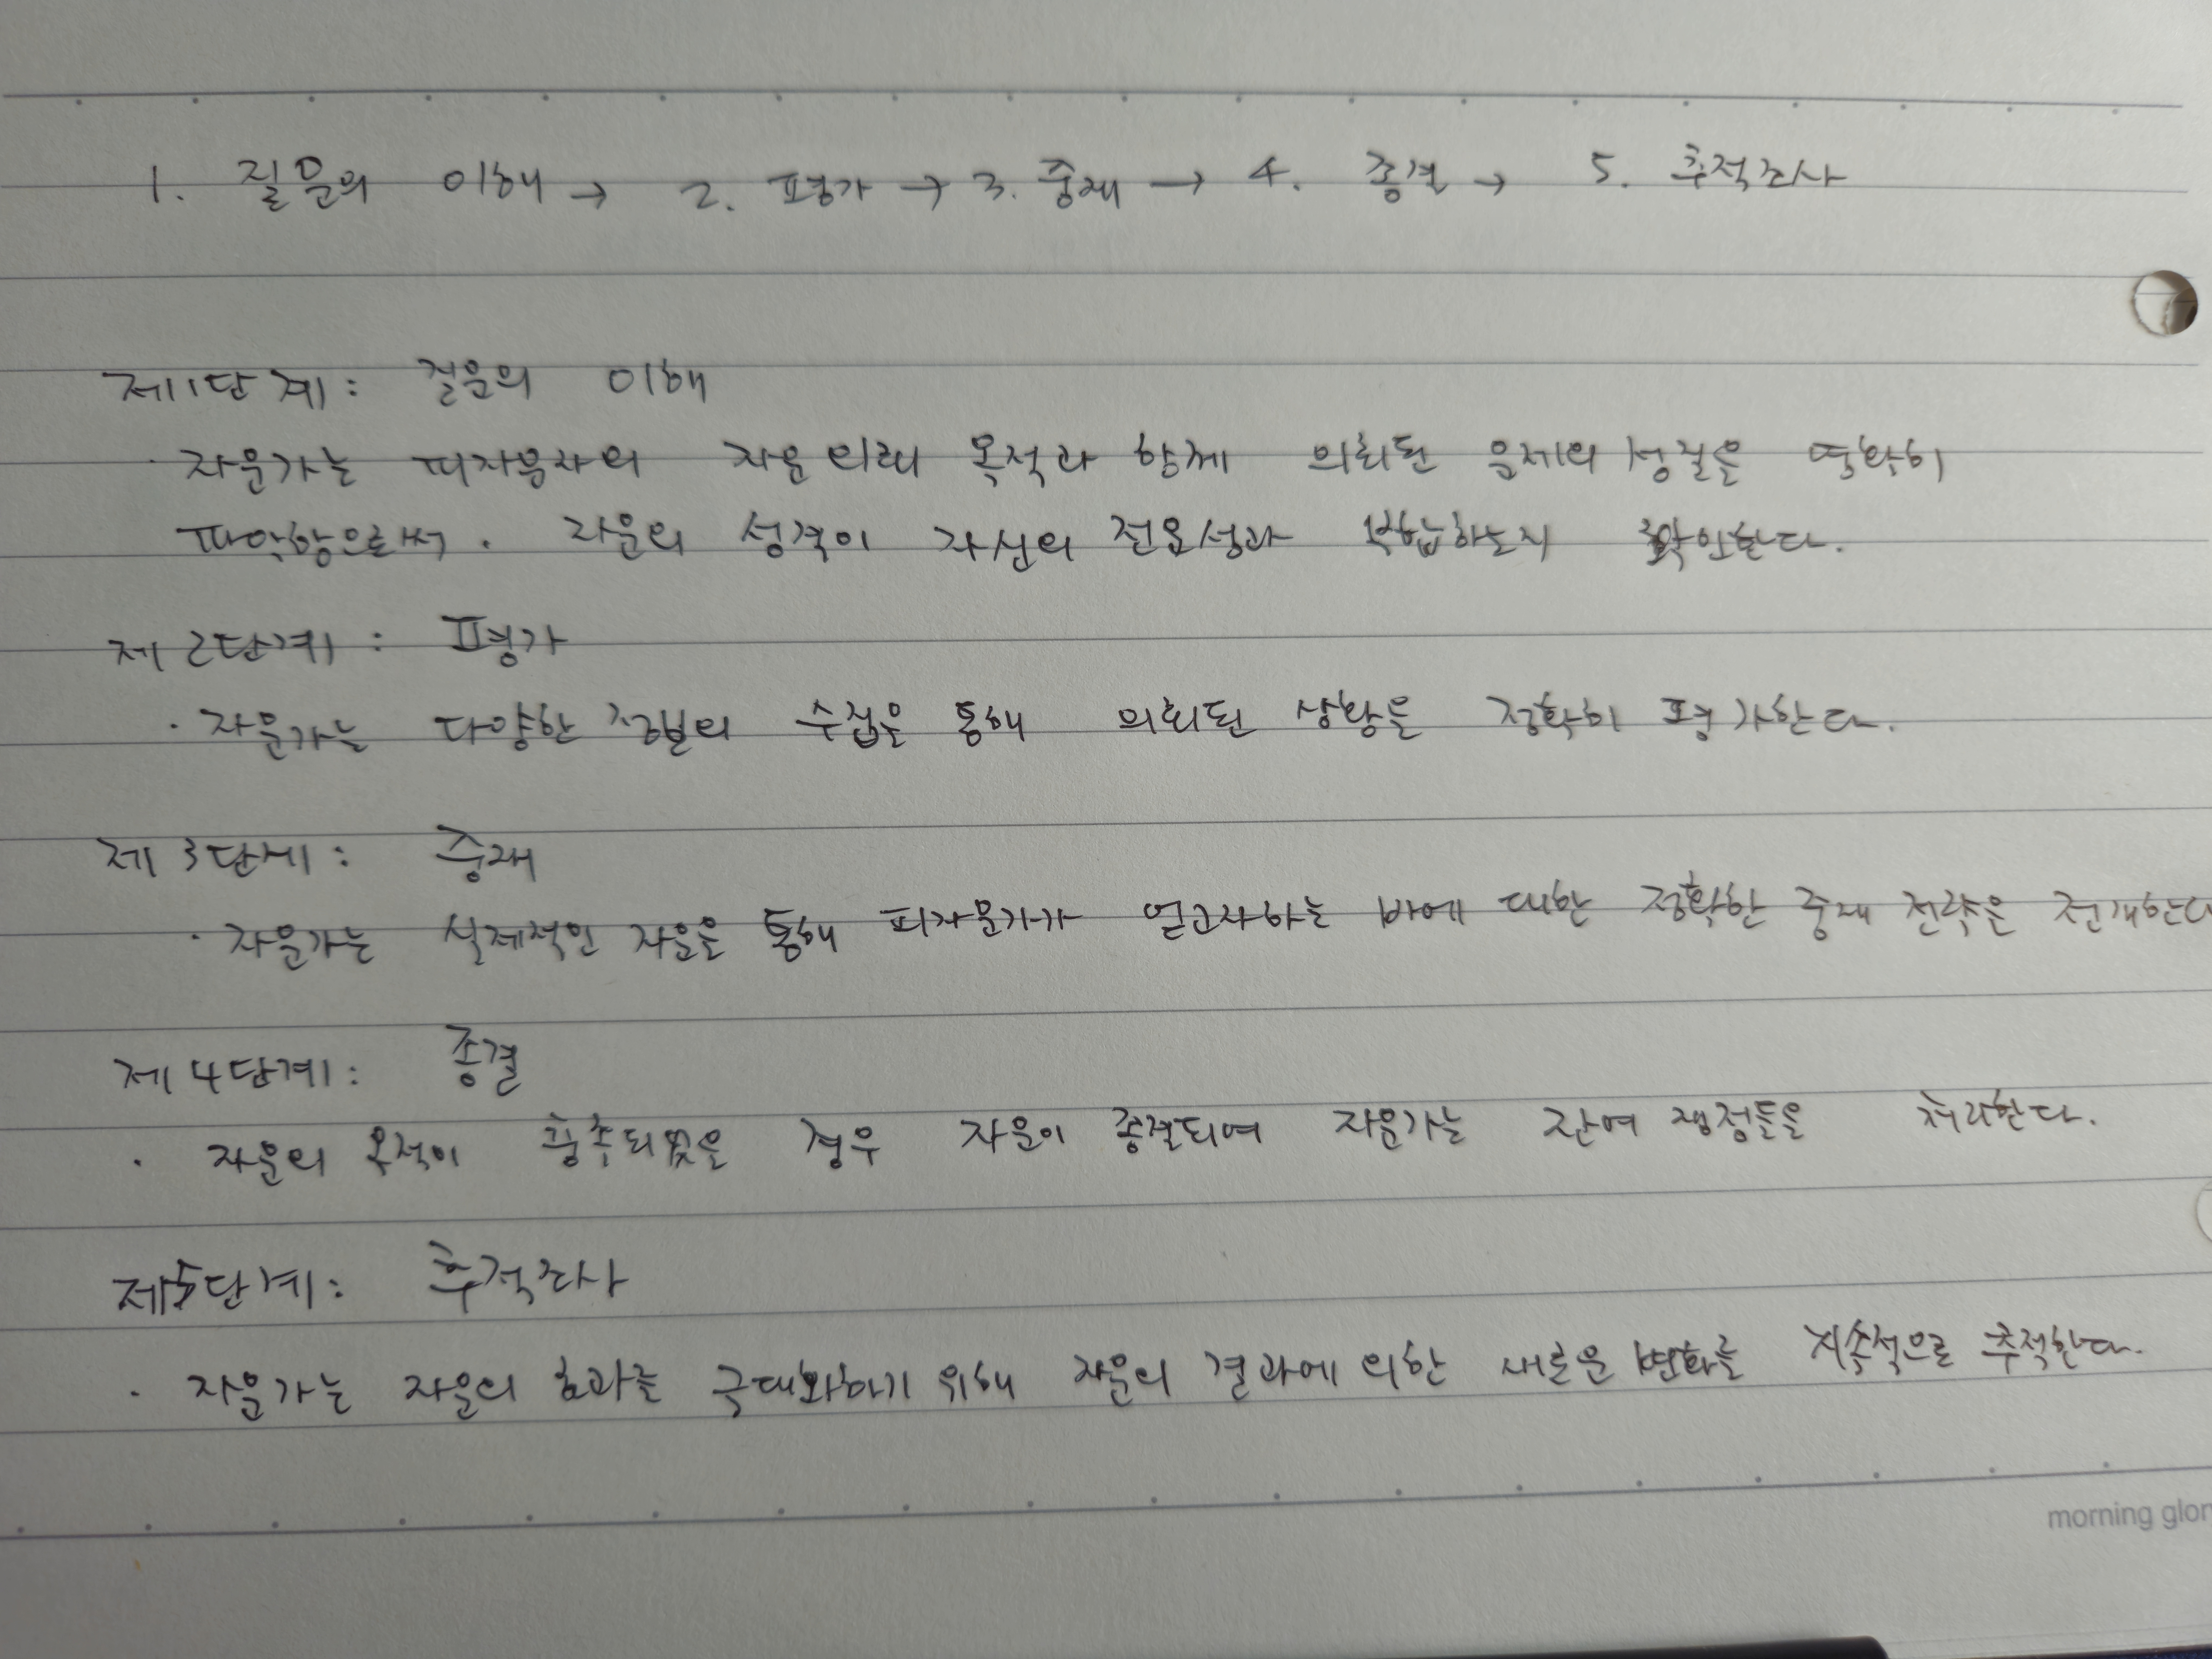 1. 질문의 이해 → 2. 평가 → 3. 중재 → 4. 종결 → 5. 추적조사
제1단계: 질문의 이해
· 자문가는 피자문자의 자문 의뢰 목적과 함께 의뢰된 문제의 성질을 명확히
파악함으로써. 자문의 성격이 자신의 전문성과 부합하는지 확인한다.
제2단계: 평가
· 자문가는 다양한 정보의 수집을 통해 의뢰된 상황을 정확히 평가한다.
제3단계: 중재
· 자문가는 실제적인 자문을 통해 피자문가가 얻고자하는 바에 대한 정확한 중재 전략을 전개한다
제4단계: 종결
· 자문의 목적이 충족되었을 경우 자문이 종결되며 자문가는 잔여 쟁점들을 처리한다.
제5단계: 추적조사
· 자문가는 자문의 효과를 극대화하기 위해 자문의 결과에 의한 새로운 변화를 지속적으로 추적한다.
morning glor